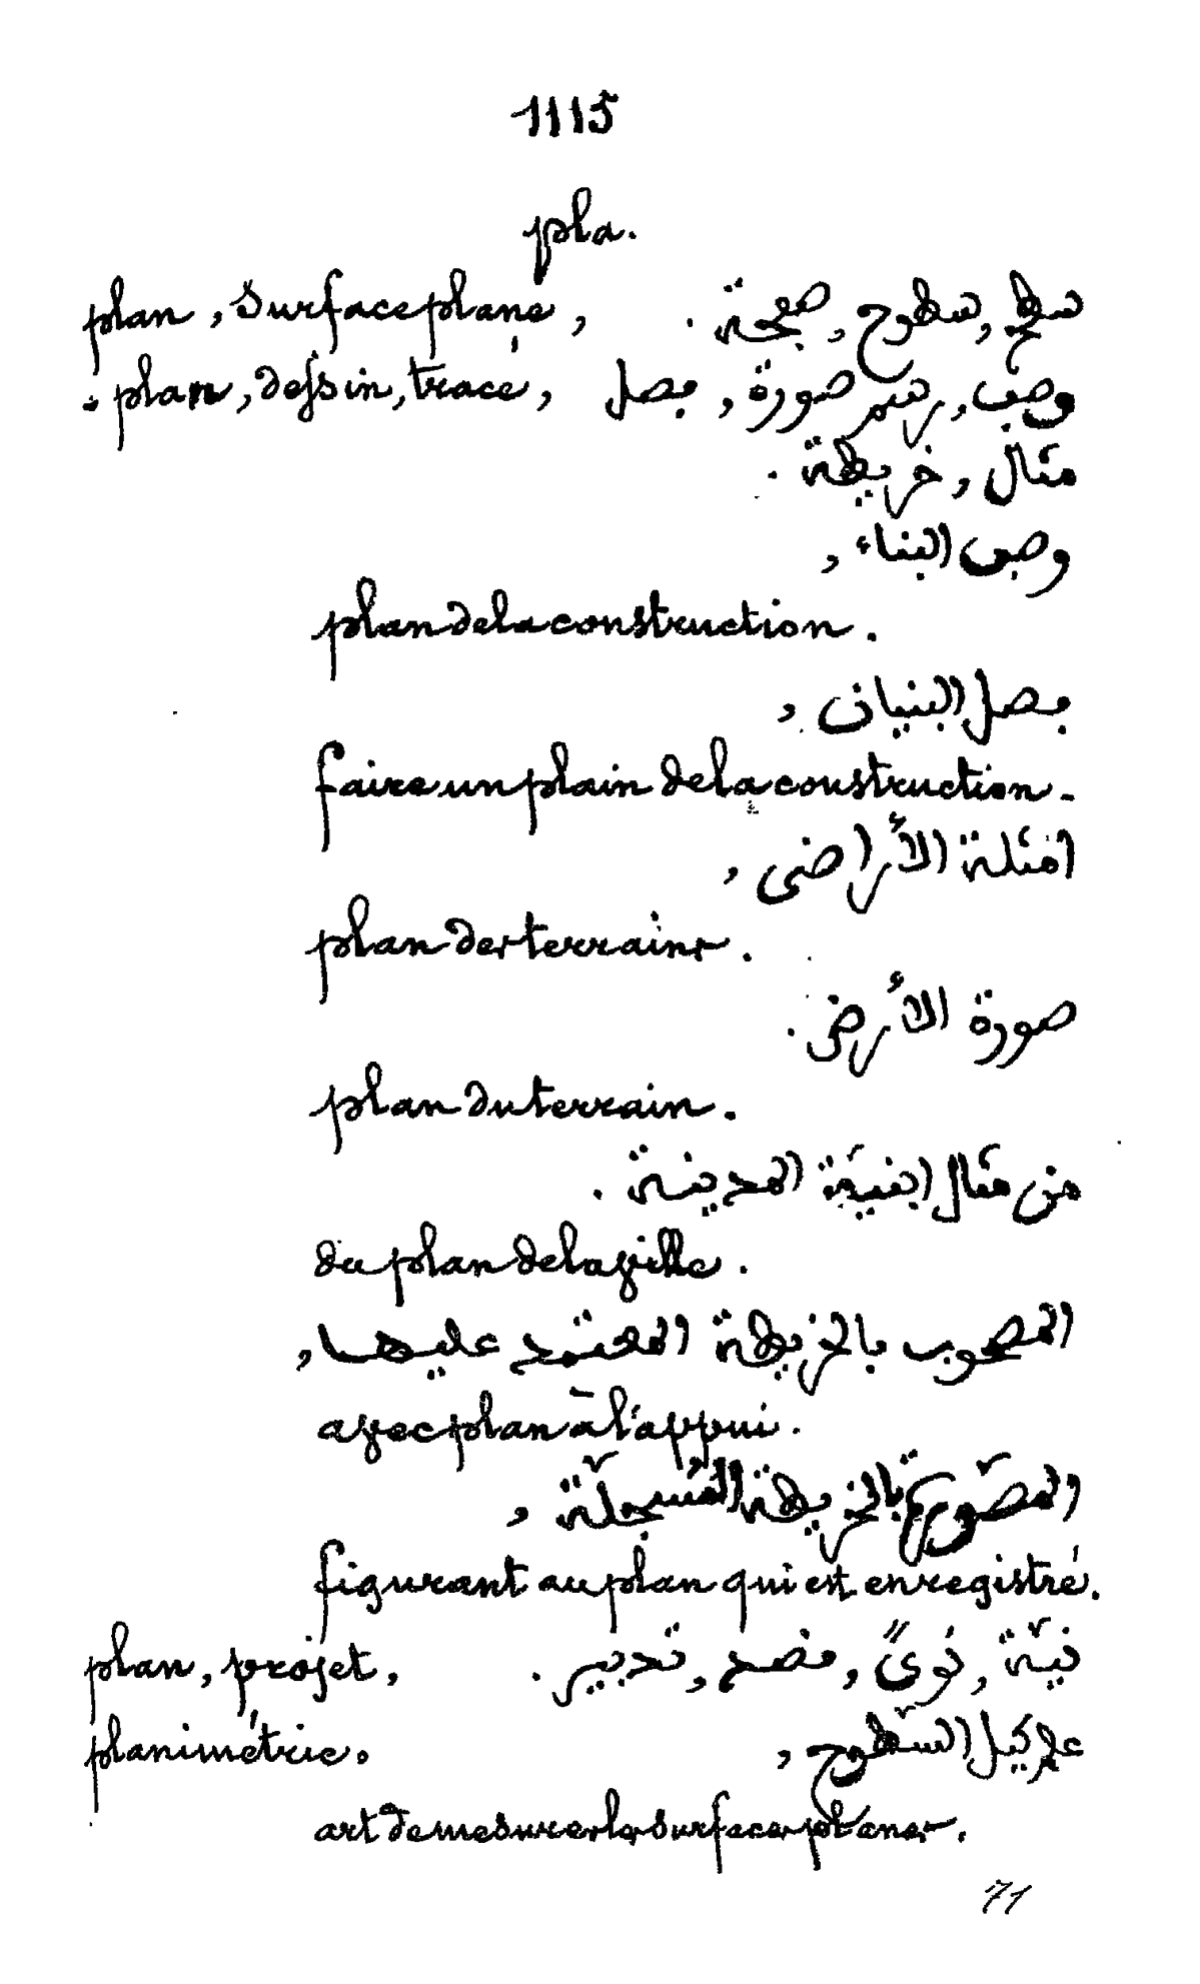 1115
pla.
plan, surface plane, سطح, سطوح, صفحة.
plan, dessin, tracé, وصف, رسم صورة, فصل
مثال, خريطة.
وصف البناء,
plan de la construction.
فصل البنيان,
faire un plain de la construction.
امثلة الأراضى,
plan des terrains.
صورة الأرض.
plan du terrain.
من مثال ابنيّة المدينة.
du plan de la ville.
المصحوب بالخريطة المعتمد عليها,
avec plan à l'appui.
بالخريطة المُسجّلة,
figurant au plan qui est enregistré.
plan, projet, نيّة, نوىً, قصد, تدبير.
planimétrie. علم كيل السّطوح,
art de mesurer les surfaces planes.
71